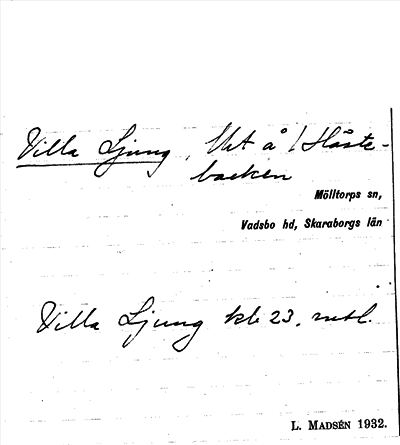 Villa Ljung, Vht å 1 Håste-
backen
Mölltorps sn,
Vadsbo hd, Skaraborgs län
Villa Ljung kb 23.
L. MADSÉN 1932.